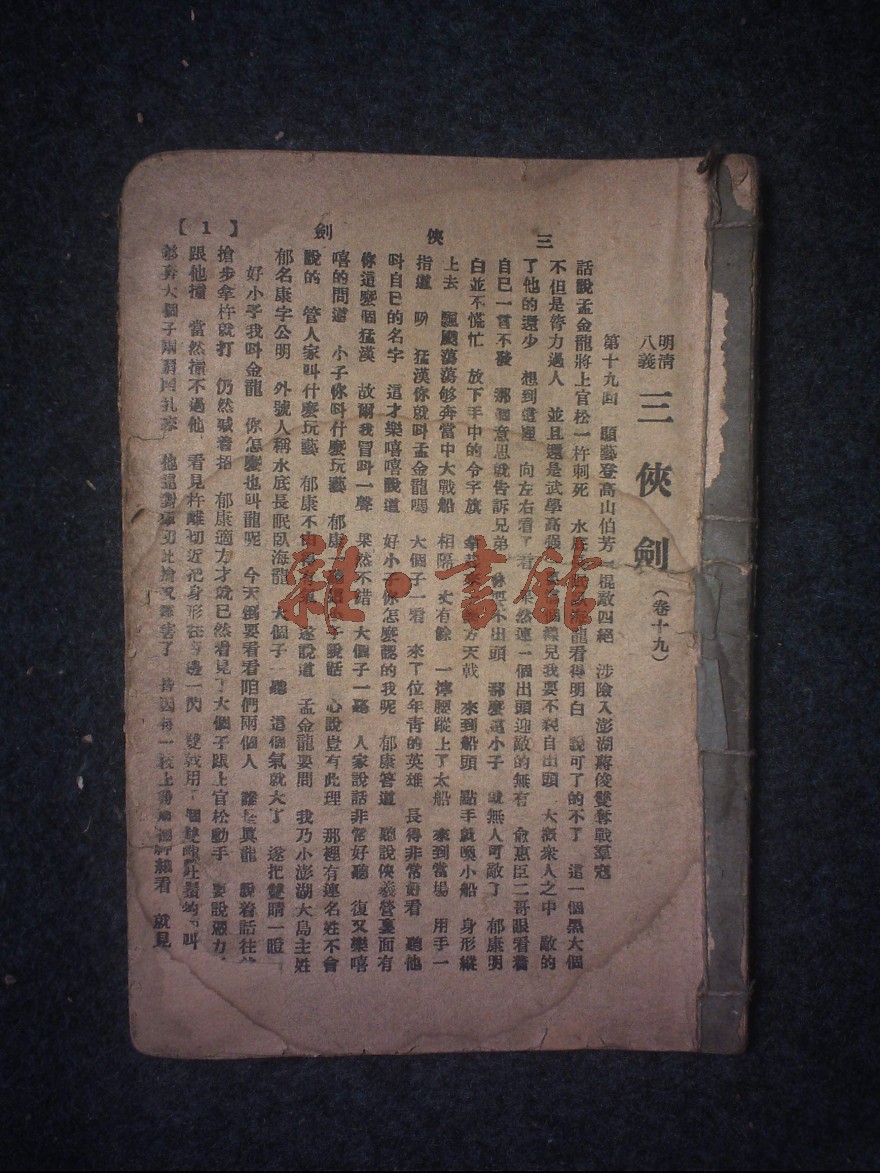 三俠劍
【1】
明清八義 三俠劍 (卷十九)
第十九回 顯藝登高山伯芳一棍敵四絕 涉險入澎湖蔣俊雙奪戰羣寇
話說孟金龍將上官松一杵刺死 水底長眠臥海龍看得明白 說可了的不了 這一個黑大個
不但是膂力過人 並且還是武學高强 我要不親自出頭 大概衆人之中 敵的
了他的還少 想到這裡 向左右看了看 果然連一個出頭迎敵的無有 俞惠臣二哥眼看着
自己一言不發 那個意思就告訴兄弟 你要不出頭 那麼這小子 就無人可敵了 郁康明
白並不慌忙 放下手中的令字旗 方天戟 來到船頭 點手就喚小船 身形縱
上去 飄飄蕩蕩够奔當中大戰船 相隔 丈有餘 一擰腰蹤上了大船 來到當場 用手一
指道 呀 猛漢你就叫孟金龍嗎 大個子一看 來了位年靑的英雄 長得非常好看 聽他
叫自己的名字 這才樂嘻嘻說道 好小子你怎麼認的我呢 郁康答道 聽說俠義營裏面有
你這麼個猛漢 故爾我冒叫一聲 果然不錯 大個子一聽 人家說話非常好聽 復又樂嘻
嘻的問道 小子你叫什麼玩藝 郁康一 子說話 心說豈有此理 那裡有連名姓不會
說的 管人家叫什麼玩藝 郁康不由 遂說道 孟金龍要問 我乃小澎湖大島主姓
郁名康字公明 外號人稱水底長眠臥海龍 大個子一聽 這個氣就大了 遂把雙睛一瞪
好小子我叫金龍 你怎麼也叫龍呢 今天倒要看看咱們兩個人 誰是眞龍 說着話往前
搶步拿杵就打 仍然喊着招 郁康適方才就已然看見了大個子跟上官松動手 要說憑力
跟他撞 當然撞不過他 看見杵離切近把身形往旁邊一閃 雙戟用了個雙 叫
就見